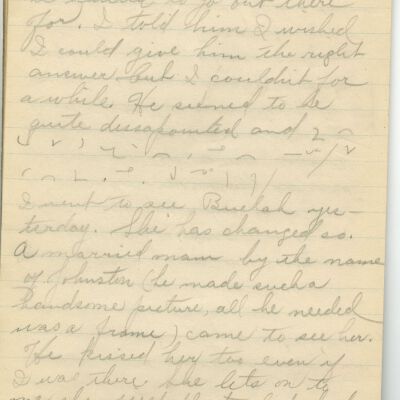 to go out there
for. I told him I wished
I could give him the right
answer but I couldn't for
a while. He seemed to be
quite dissapointed and
I went to see Buelah yes-
terday. She has changed so.
A married man by the name
of Johnston (he made such a
handsome picture, all he needed
was a frame) came to see her.
He kissed her too even if
I was there She lets on to